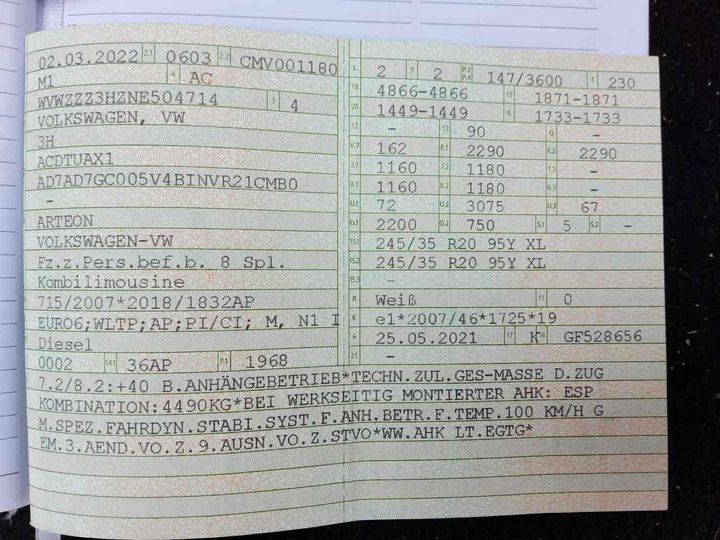 02.03.2022 2.1 0603 2.2 CMV001180
M1 4 AC
WVWZZZ3HZNE504714 3 4
VOLKSWAGEN, VW
3H
ACDTUAX1
AD7AD7GC005V4BINVR21CMB0
-
ARTEON
VOLKSWAGEN-VW
Fz.z.Pers.bef.b. 8 Spl.
Kombilimousine
715/2007*2018/1832AP
EURO6;WLTP;AP;PI/CI; M, N1 I
Diesel
0002 14.1 36AP P.1 1968
L 2 9 2 P.2 P.4 147/3600 T 230
18 4866-4866 19 1871-1871
20 1449-1449 G 1733-1733
12 - 13 90 Q -
V.7 162 F.1 2290 F.2 2290
7.1 1160 7.2 1180 7.3 -
8.1 1160 8.2 1180 8.3 -
U.1 72 U.2 3075 U.3 67
O.1 2200 O.2 750 S.1 5 S.2 -
15.1 245/35 R20 95Y XL
15.2 245/35 R20 95Y XL
15.3 -
R Weiß 11 0
K e1*2007/46*1725*19
6 25.05.2021 17 K 16 GF528656
21 -
7.2/8.2:+40 B.ANHÄNGEBETRIEB*TECHN.ZUL.GES-MASSE D.ZUG
KOMBINATION:4490KG*BEI WERKSEITIG MONTIERTER AHK: ESP
M.SPEZ.FAHRDYN.STABI.SYST.F.ANH.BETR.F.TEMP.100 KM/H G
EM.3.AEND.VO.Z.9.AUSN.VO.Z.STVO*WW.AHK LT.EGTG*